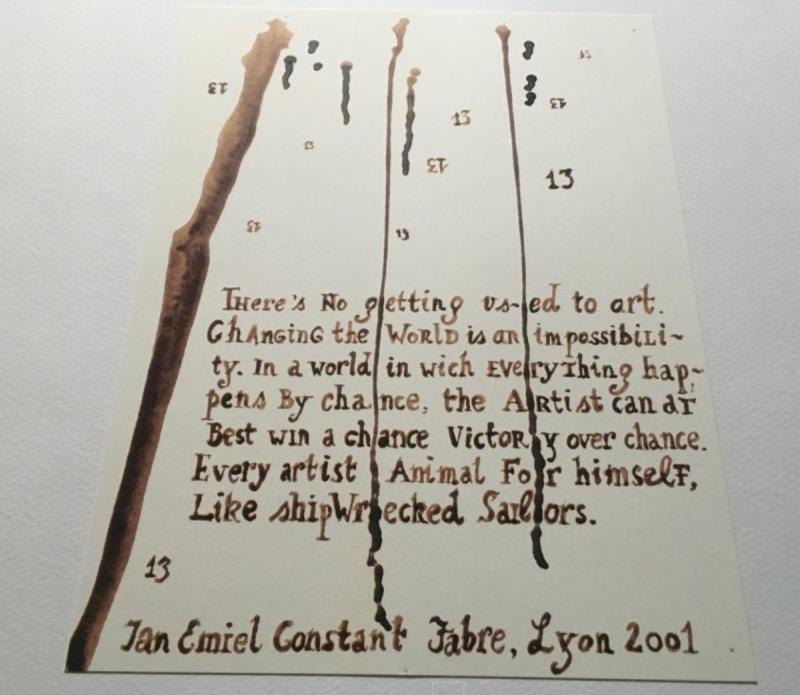 13
13
13
13
13
13
13
13
13
There's No getting us-ed to art.
Changing the World is an impossibili~
ty. In a world in wich Everything hap~
pens By chance, the Artist can at
Best win a chance Victory over chance.
Every artist Animal For himself,
Like shipWrecked Sailors.
13
Jan Emiel Constant Fabre, Lyon 2001